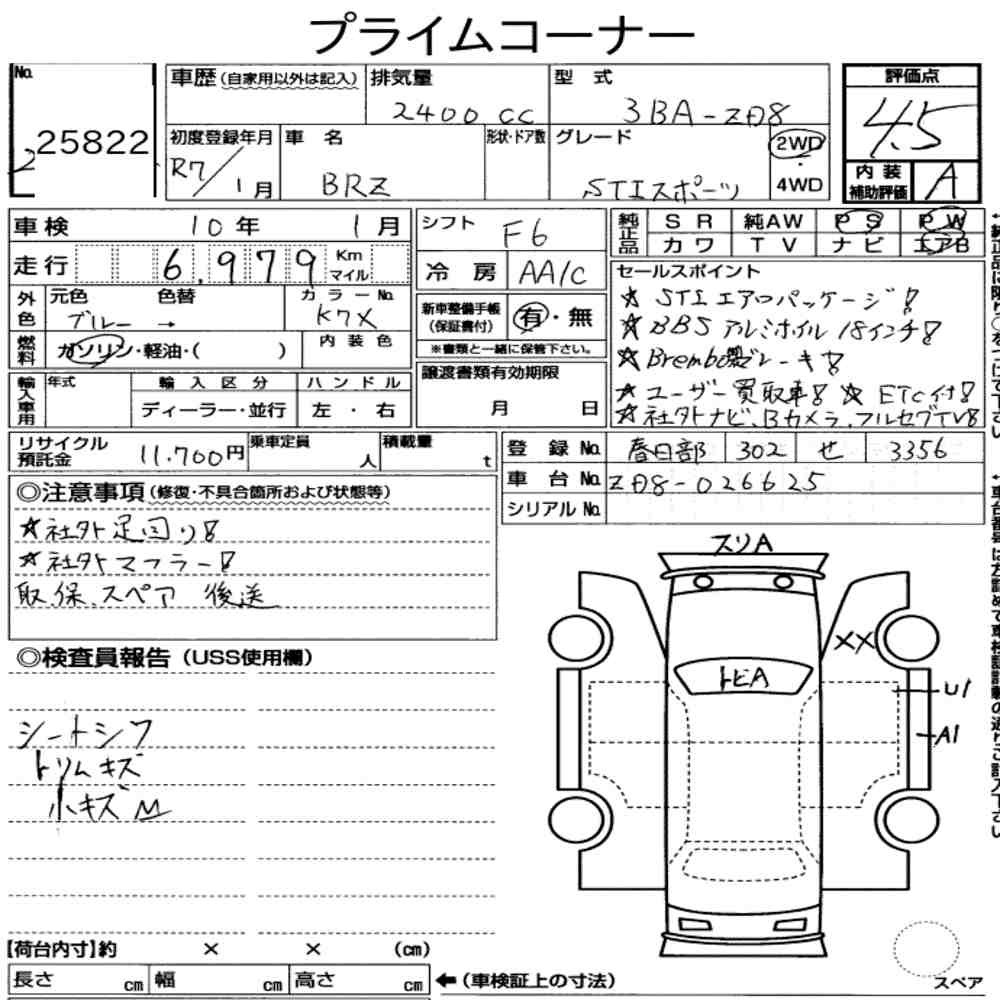 プライムコーナー
No. 25822
車歴(自家用以外は記入) 排気量 2400 CC 型式 3BA-ZD8
評価点 4.5
初度登録年月 R7/1月 車名 BRZ 形状・ドア数 グレード STIスポーツ 2WD・4WD
内装補助評価 A
車検 10年 1月 シフト F6
純正品 SR 純AW PS PW
カワ TV ナビ エアB
走行 6,979 Km マイル 冷房 AA/C
外色 元色 ブルー → 色替 カラーNo. K7X
燃料 ガソリン・軽油・( ) 内装色
新車整備手帳(保証書付) 有・無
※書類と一緒に保管下さい。
セールスポイント
☆ STIエアロパッケージ!
☆ BBSアルミホイル 18インチ!
☆ Brembo製ブレーキ!
☆ ユーザー買取車! ☆ ETC付!
☆ 社外ナビ、Bカメラ、フルセグTV!
輸入車用 年式 輸入区分 ハンドル
ディーラー・並行 左・右
譲渡書類有効期限
月 日
リサイクル預託金 11,700円 乗車定員 人 積載量 t
登録No. 春日部 302 せ 3356
車台No. ZD8-026625
シリアルNo.
◎注意事項(修復・不具合箇所および状態等)
☆社外足回り!
☆社外マフラー!
取、保、スペア 後送
◎検査員報告(USS使用欄)
シートシワ
トリムキズ
小キズ
スリA
XX
トビA
U1
A1
【荷台内寸】約 × × (cm)
長さ cm 幅 cm 高さ cm ←(車検証上の寸法)
スペア